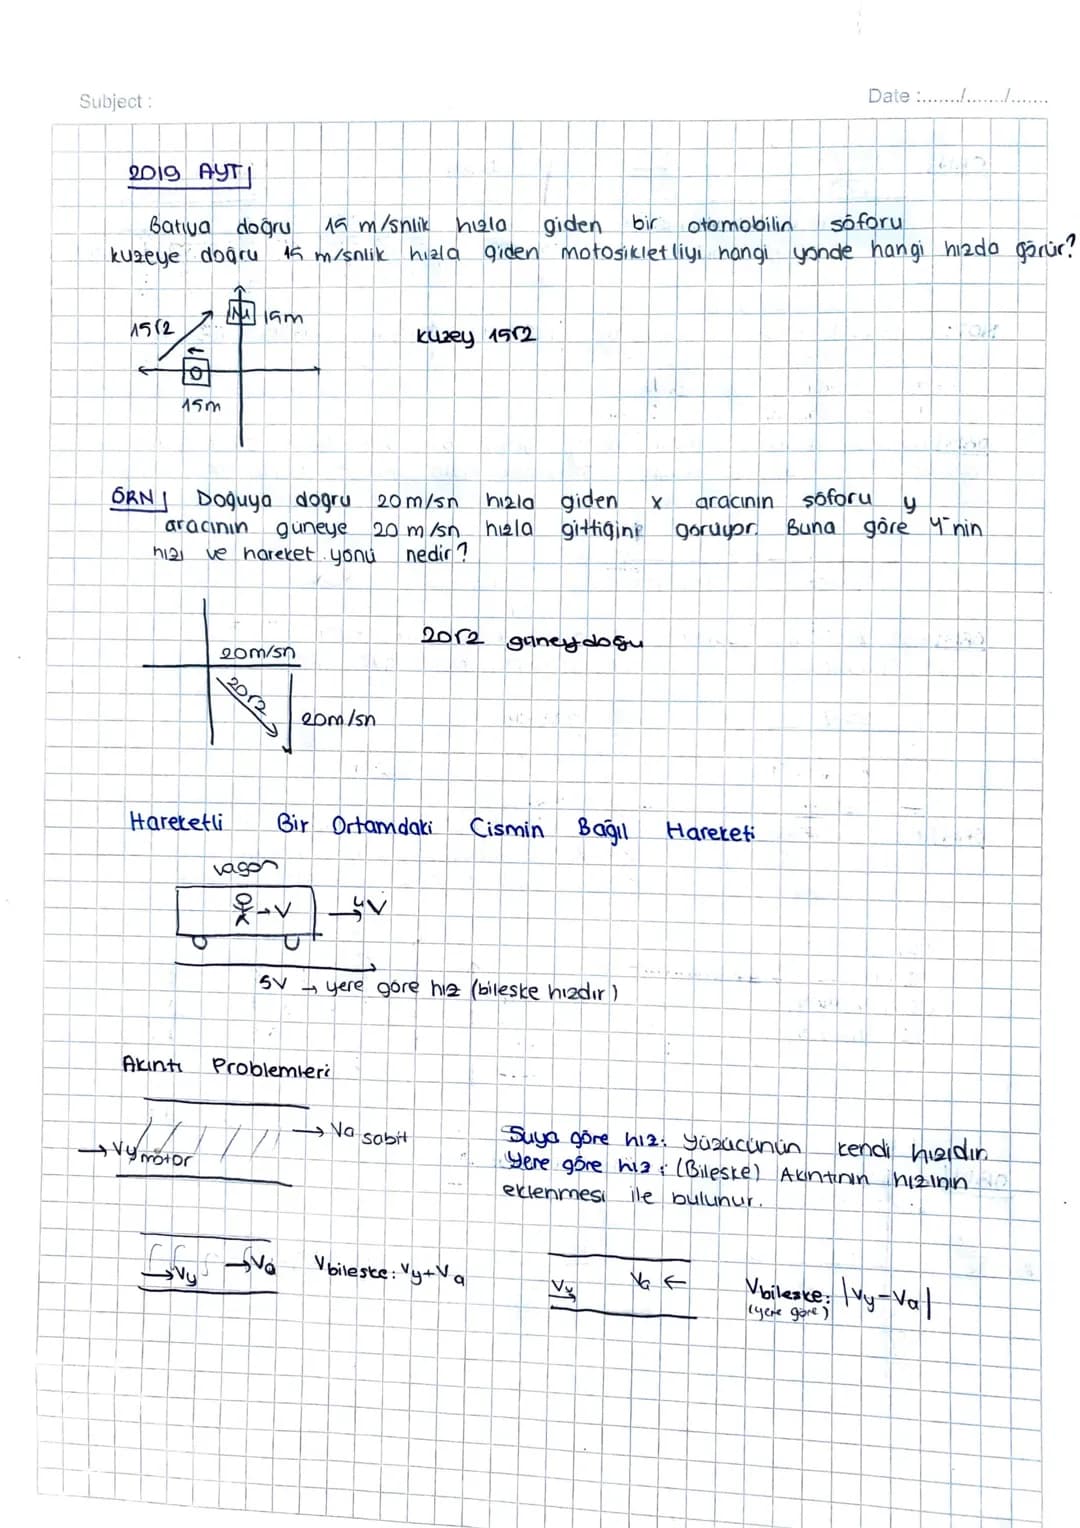 Subject :
Date :......../......../........
2019 AYT
Batıya doğru 15 m/snlik hızla giden bir otomobilin şöforu
kuzeye doğru 15 m/snlik hızla giden motosikletliyi hangi yönde hangi hızda görür?
15√2
M 15m
kuzey 15√2
O
15m
ÖRN Doğuya doğru 20 m/sn hızla giden x aracının şöforu y
aracının güneye 20 m/sn hızla gittiğini görüyor. Buna göre y'nin
hızı ve hareket yönü nedir?
20√2 güneydoğu
20m/sn
20√2
20m/sn
Hareketli Bir Ortamdaki Cismin Bağıl Hareketi
vagon
→V
4V
5V → yere göre hız (bileşke hızdır)
Akıntı Problemleri
→ Va sabit
→ Vy motor
Suya göre hız: Yüzücünün kendi hızıdır.
Yere göre hız: (Bileşke) Akıntının hızının
eklenmesi ile bulunur.
→Vy →Va Vbileşke: Vy+Va
Vy Va ← Vbileşke: |Vy-Va|
(yere göre)